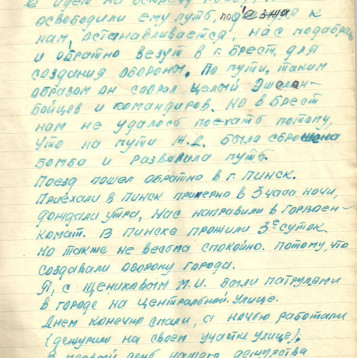 освободили ему путь, подъезжая к
нам, останавливается, нас подобрали
и обратно везут в г. Брест, для
создания обороны. По пути, таким
образом он собрал целый эшелон
бойцев и командиров. Но в Брест
нам не удалось поехать потому,
что на пути Ж.Д. была сброшена
бомба и развалила путь.
Поезд пошел обратно в г. Пинск.
Приехали в Пинск примерно в 3 часа ночи,
дождали утра, нас направили в Горвоен-
комат. В Пинске прожили 3е суток.
Но также не весьма спокойно. Потому, что
создавали оборону города.
Я, с Щениковым М.И. были патрулями
в городе на центральной улице.
Днем конечно спали, а ночью работали
(дежурим на своем участке улице).
В первый день нашего дежурства